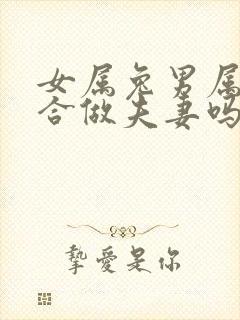 女属兔男属
合做夫妻吗
挚爱是你